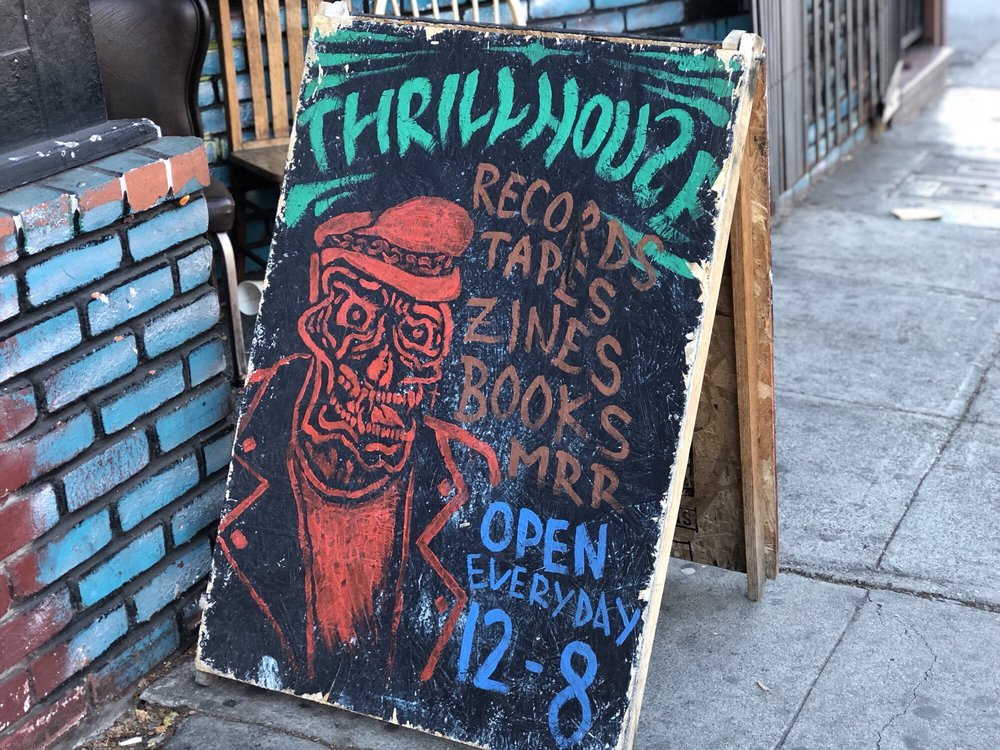 THRILLHOUSE
RECORDS
TAPES
ZINES
BOOKS
MRR
OPEN
EVERYDAY
12-8